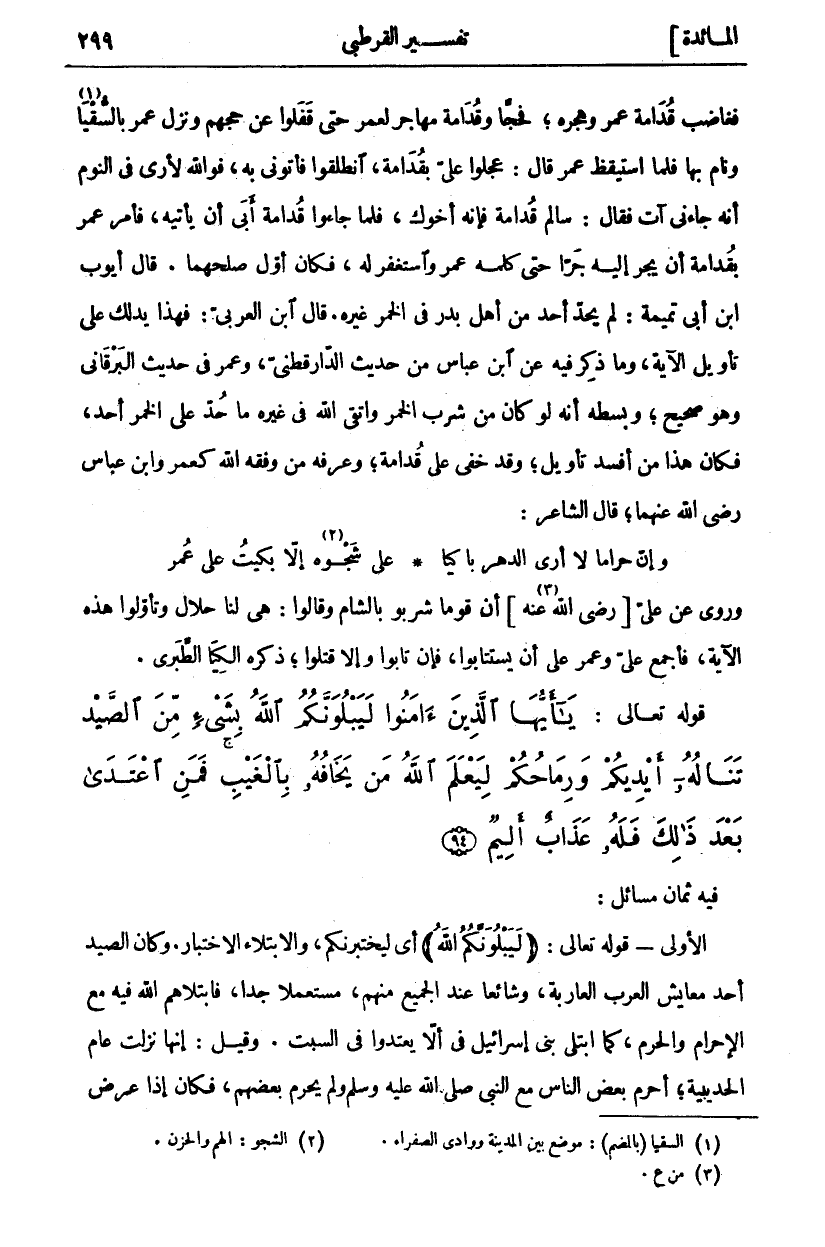 المائدة] تفسير القرطبى ٢٩٩
فغاضب قُدَامة عمر وهجره ؛ فحجّا وقُدَامة مهاجر لعمر حتى قَفَلوا عن حجهم ونزل عمر بالسُّقْيَا (١)
ونام بها فلما استيقظ عمر قال : عجلوا علىّ بقُدَامة، ٱنطلقوا فأتونى به، فوالله لأرى فى النوم
أنه جاءنى آت فقال : سالم قُدامة فإنه أخوك ، فلما جاءوا قُدامة أَبَى أن يأتيه، فأمر عمر
بقُدامة أن يجر إليـه جَرّا حتى كلمـه عمر وٱستغفر له ، فكان أوّل صلحهما . قال أيوب
ابن أبى تميمة : لم يحدّ أحد من أهل بدر فى الخمر غيره. قال ٱبن العربىّ : فهذا يدلك على
تأويل الآية، وما ذكر فيه عن ٱبن عباس من حديث الدّارقطنىّ، وعمر فى حديث البَرْقانى
وهو صحيح ؛ وبسطه أنه لو كان من شرب الخمر واتقى الله فى غيره ما حُدّ على الخمر أحد،
فكان هذا من أفسد تأويل؛ وقد خفى على قُدامة؛ وعرفه من وفقه الله كعمر وابن عباس
رضى الله عنهما؛ قال الشاعر :
وإنّ حراما لا أرى الدهر باكيا * على شَجْـوه (٢) إلّا بكيتُ على عُمر
وروى عن علىّ [ رضى الله عنه (٣) ] أن قوما شربو بالشام وقالوا : هى لنا حلال وتأوّلوا هذه
الآية، فأجمع علىّ وعمر على أن يستتابوا، فإن تابوا وإلا قتلوا ؛ ذكره الكِيَا الطَّبَرى .
قوله تعـالى : يَـٰٓأَيُّهَا ٱلَّذِينَ ءَامَنُوا لَيَبْلُوَنَّكُمُ ٱللَّهُ بِشَىْءٍ مِّنَ ٱلصَّيْدِ
تَنَالُهُۥٓ أَيْدِيكُمْ وَرِمَاحُكُمْ لِيَعْلَمَ ٱللَّهُ مَن يَخَافُهُۥ بِٱلْغَيْبِ ۚ فَمَنِ ٱعْتَدَىٰ
بَعْدَ ذَٰلِكَ فَلَهُۥ عَذَابٌ أَلِيمٌ ٩٤
فيه ثمان مسائل :
الأولى — قوله تعالى : (لَيَبْلُوَنَّكُمُ اللهُ) أى ليختبرنكم، والابتلاء الاختبار. وكان الصيد
أحد معايش العرب العاربة، وشائعا عند الجميع منهم، مستعملا جدا، فابتلاهم الله فيه مع
الإحرام والحرم ، كما ابتلى بنى إسرائيل فى ألّا يعتدوا فى السبت . وقيـل : إنها نزلت عام
الحديبية؛ أحرم بعض الناس مع النبى صلى الله عليه وسلم ولم يحرم بعضهم، فكان إذا عرض
(١) السقيا (بالضم) : موضع بين المدينة ووادى الصفراء . (٢) الشجو : الهم والحزن .
(٣) من ع .